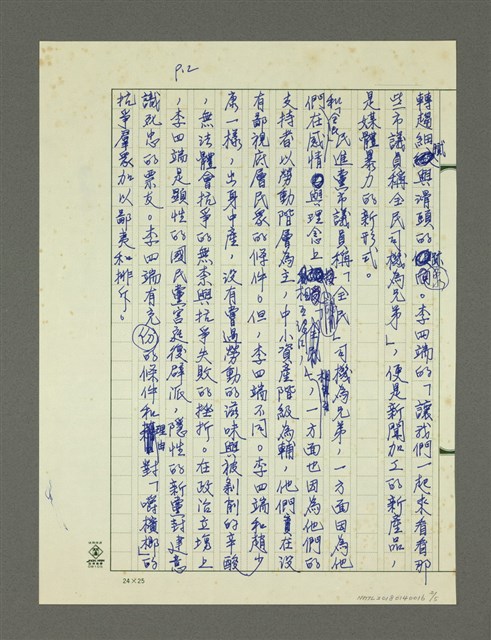 P.2
轉趨細膩與滑頭的陳示。李四端的「讓我們一起來看看那
些市議員稱全民司機為兄弟」,便是新聞加工的新產品,
是媒體暴力的新形式。
和全民進黨市議員稱「全民」司機為兄弟,一方面因為他
們在感情與理念上相互接,一方面也因為他們的
支持者以勞動階層為主,中小資產階級為輔,他們實在沒
有鄙視底層民眾的條件。但,李四端不同。李四端和趙少
康一樣,出身中產,沒有嘗過勞動的滋味與被剝削的辛酸
,無法體會抗爭的無奈與抗爭失敗的挫折。在政治立場上
,李四端是顯性的國民黨宮庭復辟派,隱性的新黨封建意
識效忠的票友。李四端有充份的條件和理由對「嚼檳榔」的
抗爭羣眾加以鄙夷和排斥。
24×25
NMTL20080140016 2/5